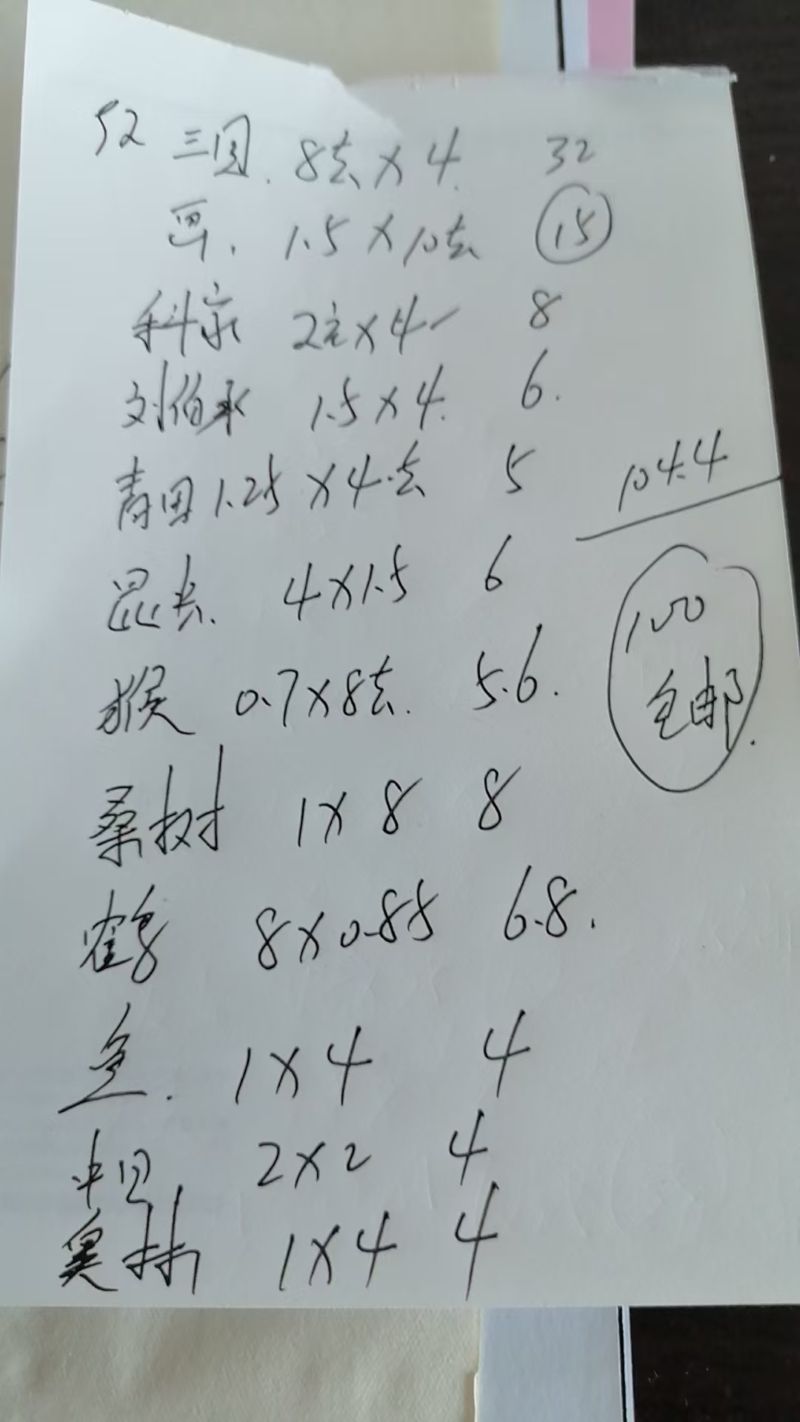 52 三国. 8套×4. 32
画. 1.5×10套 15
科家 2套×4 8
刘伯承 1.5×4. 6.
青田1.25×4套 5
104.4
昆长. 4×1.5 6
100
包邮.
猴 0.7×8套. 5.6.
桑树 1×8 8
鹤 8×0.85 6.8.
鱼. 1×4 4
中贝 2×2 4
奥林 1×4 4